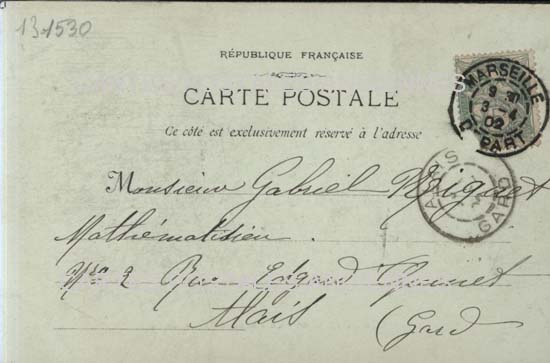 13-1530
RÉPUBLIQUE FRANÇAISE
CARTE POSTALE
Ce côté est exclusivement réservé à l'adresse
MARSEILLE
9
3 4
02
DÉPART
ALAIS
GARD
Monsieur Gabriel
Mathématicien
2 Rue Edgard Quinet
Alais (Gard)